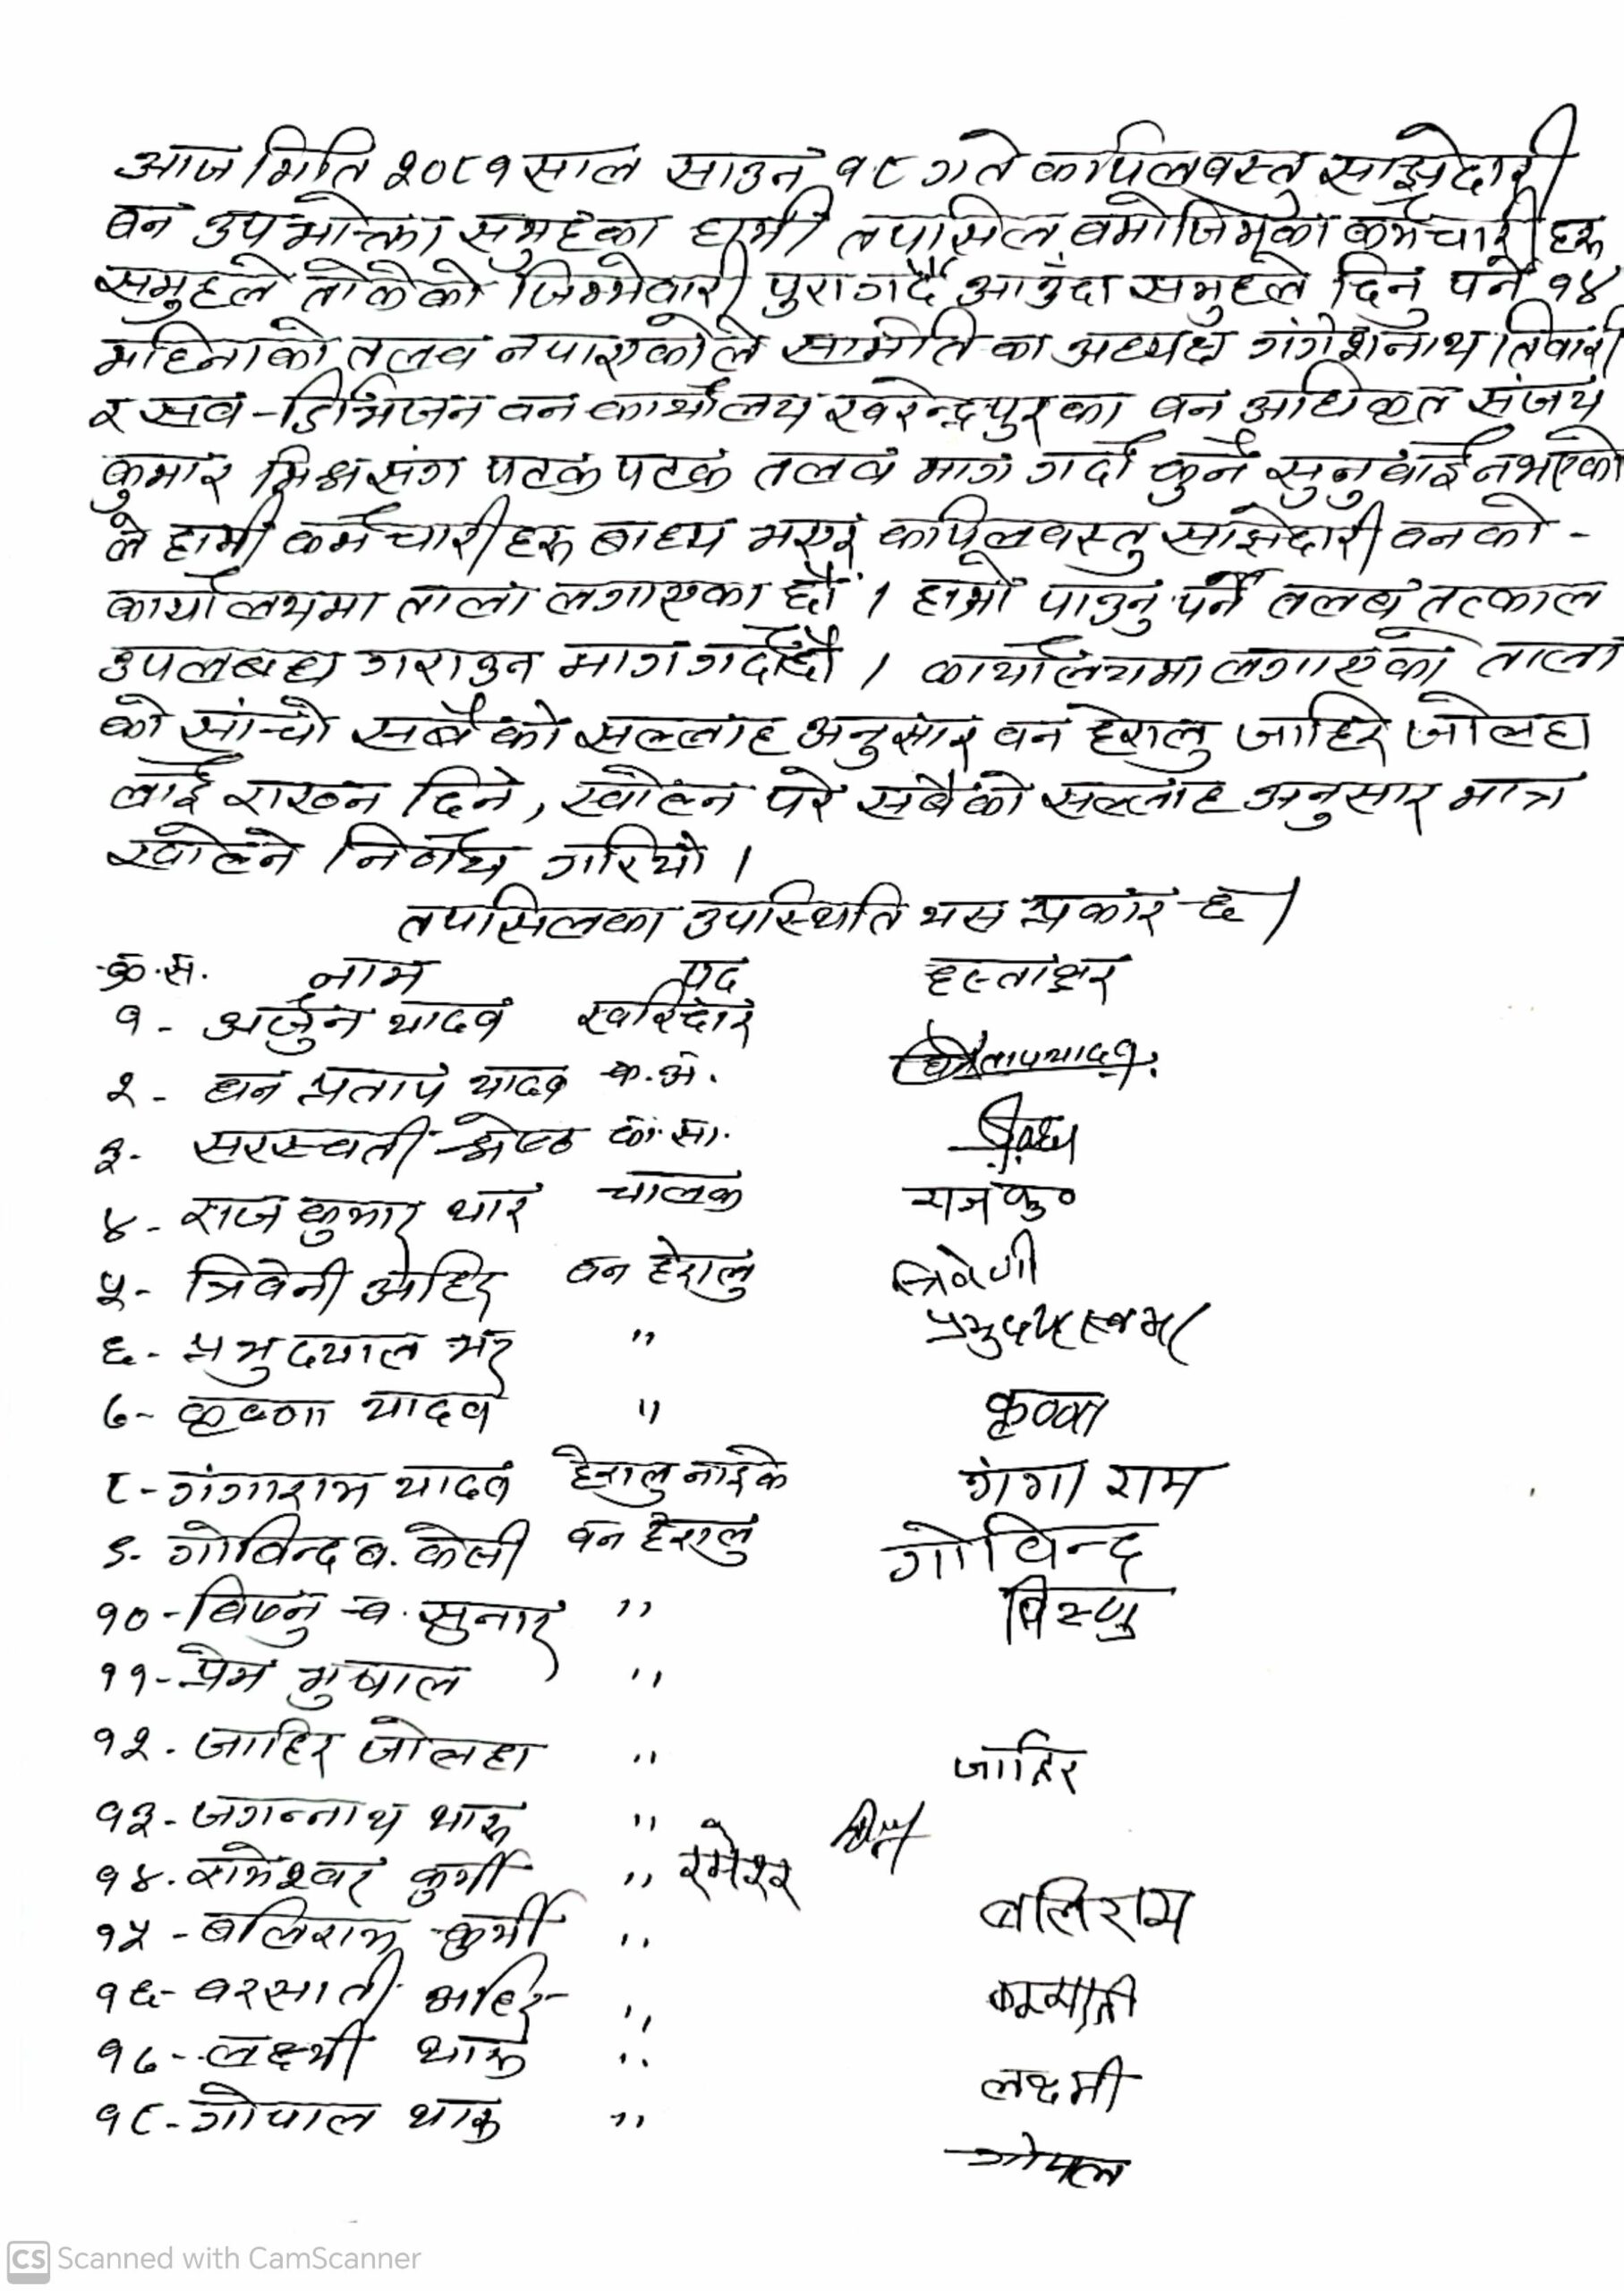 आज मिति २०८१ साल साउन १८ गते कपिलवस्तु साझेदारी
वन उपभोक्ता समुहका हामी तपासिल वमोजिमको कर्मचारी हरु
समुहले तोकेको जिम्मेवारी पुरा गर्दै आउँदा समुहले दिनु पर्ने १४
महिनाको तलव नपाएकोले समिति का अध्यक्ष गंगेशनाथ तिवारी
र सव-डिभिजन वन कार्यालय खरेन्द्रपुर का वन अधिकृत संजय
कुमार मिश्र संग पटक पटक तलव माग गर्दा कुनै सुनुवाई नभएको
ले हामी कर्मचारी हरु बाध्य भएर कपिलवस्तु साझेदारी वनको -
कार्यालयमा ताला लगाएका छौं । हाम्रो पाउनु पर्ने तलव तत्काल
उपलबध गराउन माग गर्दछौं । कार्यालयमा लगाएको ताला
को सांचो सबै को सल्लाह अनुसार वन हेरालु जाहिर जोलहा
लाई राख्न दिने, खोल्न परे सबैको सल्लाह अनुसार मात्र
खोल्ने निर्णय गरियो ।
तपासिलका उपस्थिति यस प्रकार छ ।
क्र.स. नाम पद हस्ताक्षर
१- अर्जुन यादव खरिदार
२- धन प्रताप यादव क.अ.
३- सरस्वती श्रेष्ठ का.स.
४- राज कुमार थारु चालक राजकु०
५- त्रिवेनी अहिर वन हेरालु त्रिवेणी
६- प्रभुदयाल भर "
७- कृष्णा यादव " कृष्णा
८- गंगाराम यादव हेरालु नाईके गंगा राम
९- गोविन्द ब. केसी वन हेरालु गोविन्द
१०- विष्नु व. सुनार " विस्णु
११- प्रेम भुषाल "
१२- जाहिर जोलहा " जाहिर
१३- जगन्नाथ थारु "
१४- रामेश्वर कुर्मी " रमेश्र
१५- बलिराम कुर्मी " बलिराम
१६- वरसाती अहिर " बरसाती
१७- लक्ष्मी थारु " लक्ष्मी
१८- गोपाल थारु " गोपाल
CS Scanned with CamScanner